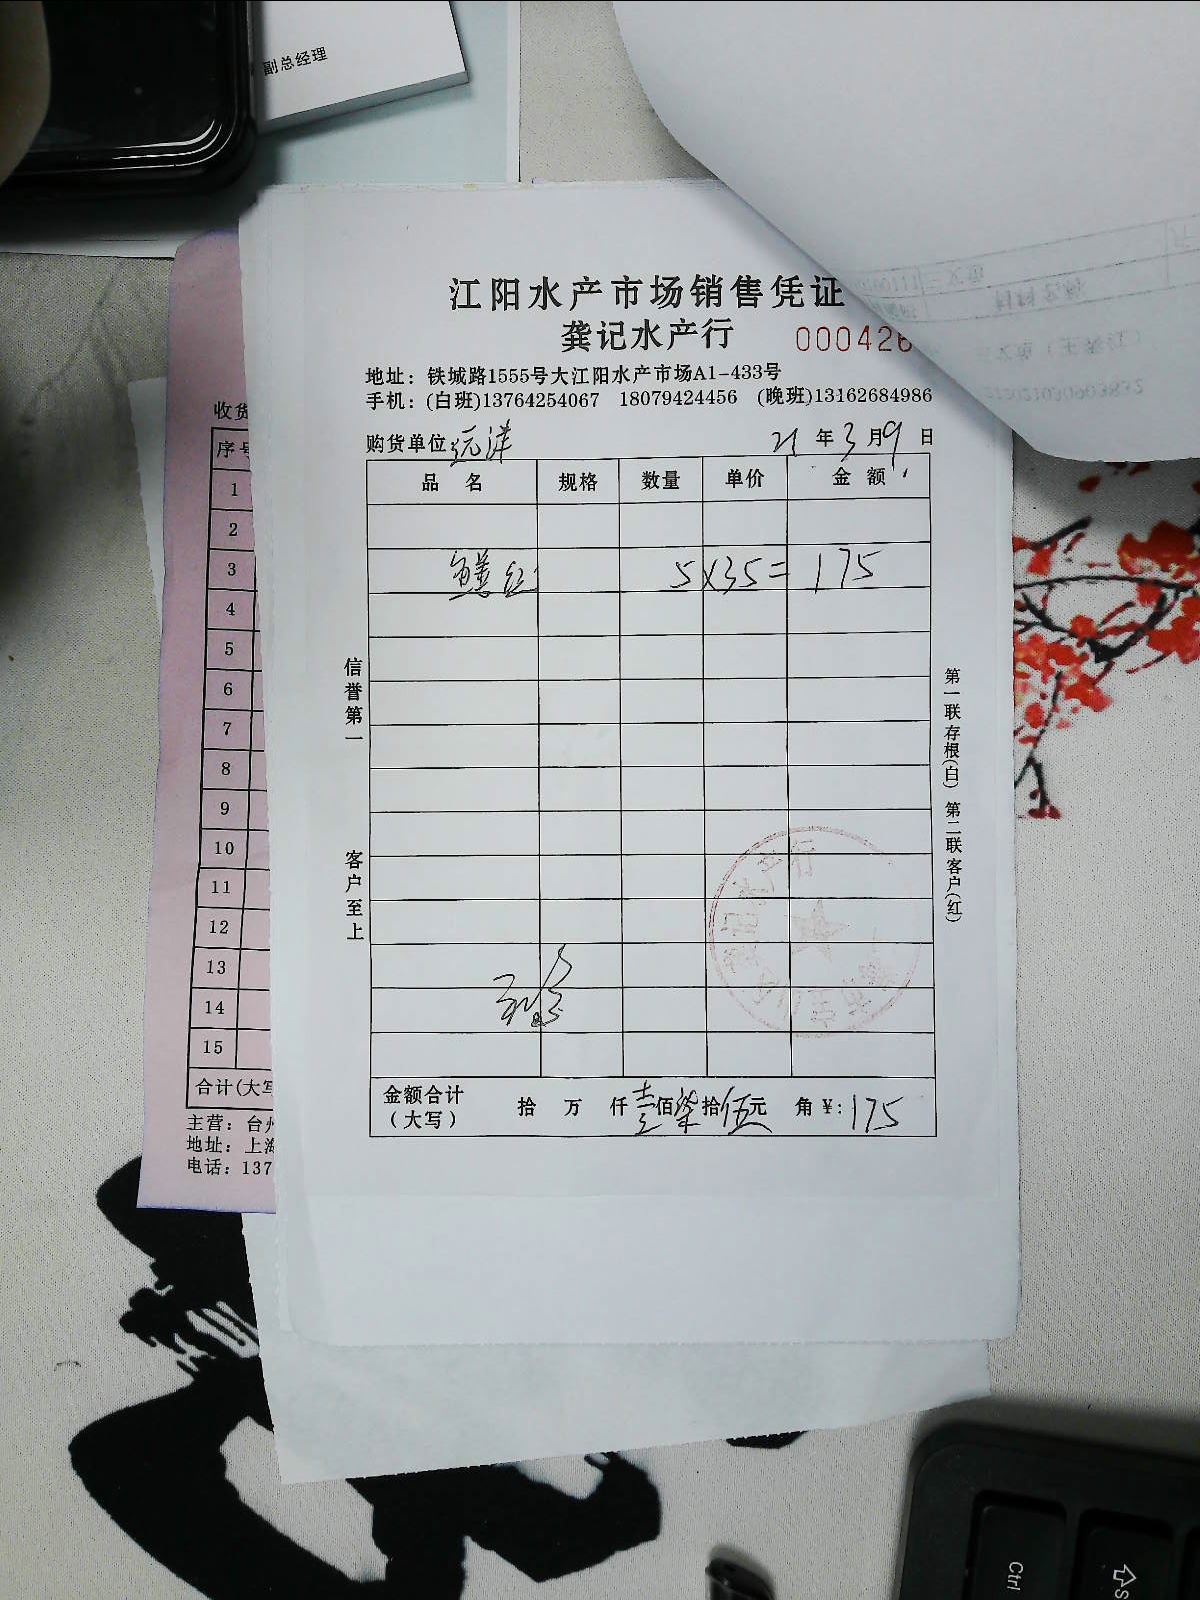 副总经理
江阳水产市场销售凭证
龚记水产行
000426
地址：铁城路1555号大江阳水产市场A1-433号
手机：(白班)13764254067 18079424456 (晚班)13162684986
购货单位 远洋 21 年 3 月 9 日
品名 规格 数量 单价 金额
5×35= 175
信誉第一
客户至上
第一联存根(白) 第二联客户(红)
金额合计 拾 万 仟 壹 佰 柒 拾 伍 元 角 ¥: 175
(大写)
收货
序号
1
2
3
4
5
6
7
8
9
10
11
12
13
14
15
合计(大写
主营：台州
地址：上海
电话：137
Ctrl